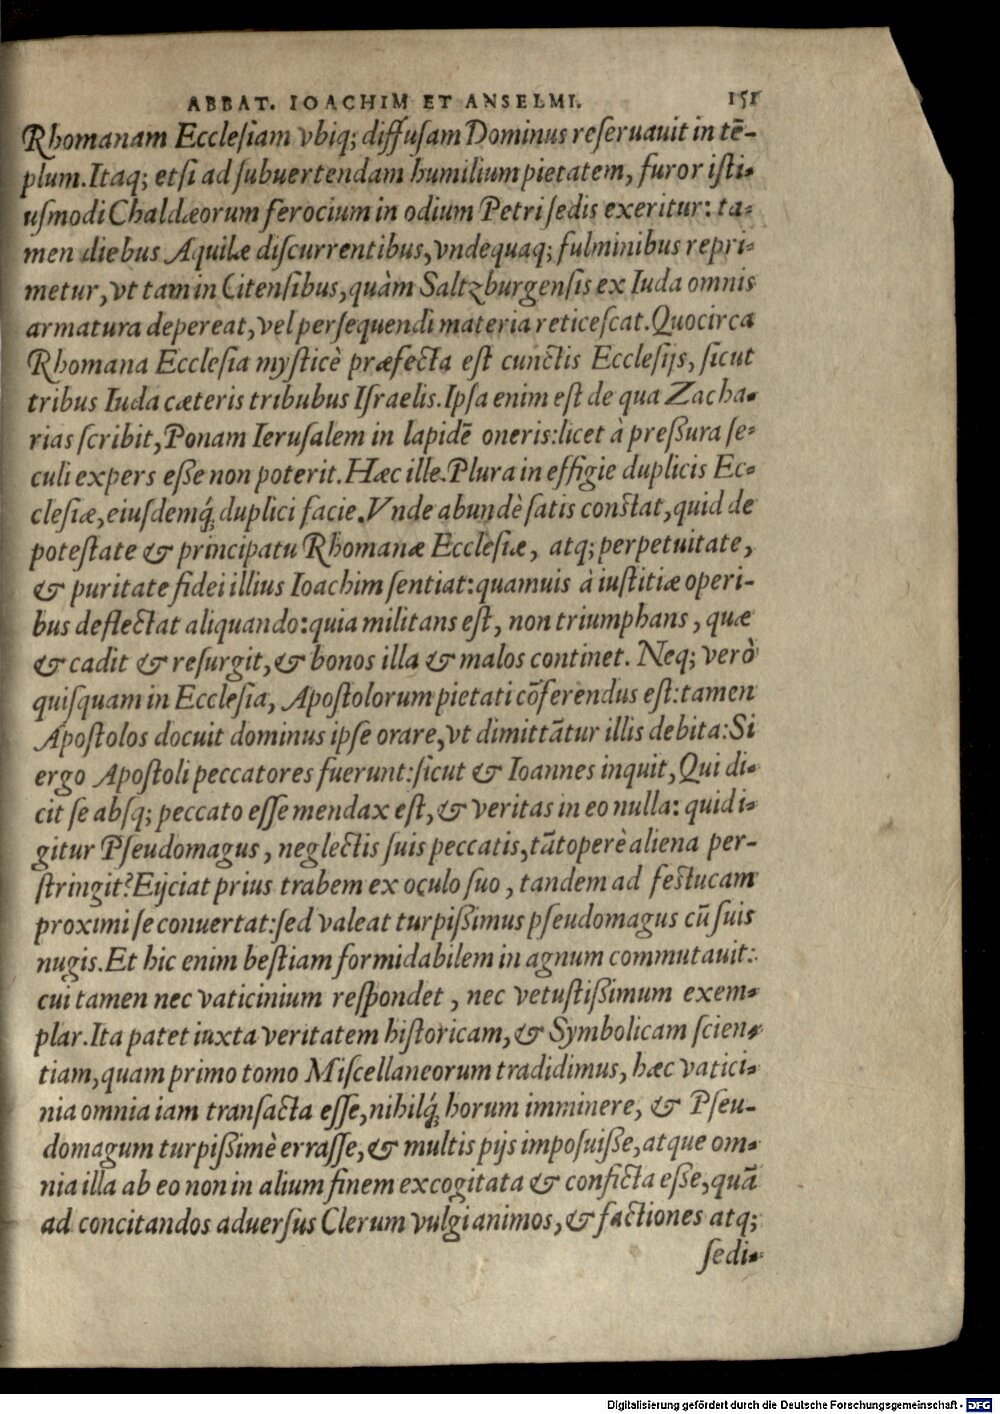 ABBAT. IOACHIM ET ANSELMI. 151
Rhomanam Ecclesiam vbiq; diffusam Dominus reseruauit in tē-
plum. Itaq; etsi ad subuertendam humilium pietatem, furor isti-
usmodi Chaldæorum ferocium in odium Petri sedis exeritur: ta-
men diebus Aquilæ discurrentibus, vndequaq; fulminibus repri-
metur, vt tam in Citensibus, quàm Saltzburgensis ex Iuda omnis
armatura depereat, vel persequendi materia reticescat. Quocirca
Rhomana Ecclesia mysticè præfecta est cunctis Ecclesijs, sicut
tribus Iuda cæteris tribubus Israelis. Ipsa enim est de qua Zacha-
rias scribit, Ponam Ierusalem in lapidē oneris: licet à preßura se-
culi expers eße non poterit. Hæc ille. Plura in effigie duplicis Ec-
clesiæ, eiusdemq́; duplici facie. Vnde abundè satis constat, quid de
potestate & principatu Rhomanæ Ecclesiæ, atq; perpetuitate,
& puritate fidei illius Ioachim sentiat: quamuis à iustitiæ operi-
bus deflectat aliquando: quia militans est, non triumphans, quæ
& cadit & resurgit, & bonos illa & malos continet. Neq; verò
quisquam in Ecclesia, Apostolorum pietati cōferendus est: tamen
Apostolos docuit dominus ipse orare, vt dimittātur illis debita: Si
ergo Apostoli peccatores fuerunt: sicut & Ioannes inquit, Qui di-
cit se absq; peccato esse mendax est, & veritas in eo nulla: quid i-
gitur Pseudomagus, neglectis suis peccatis, tātoperè aliena per-
stringit? Eijciat prius trabem ex oculo suo, tandem ad festucam
proximi se conuertat: sed valeat turpißimus pseudomagus cū suis
nugis. Et hic enim bestiam formidabilem in agnum commutauit:
cui tamen nec vaticinium respondet, nec vetustißimum exem-
plar. Ita patet iuxta veritatem historicam, & Symbolicam scien-
tiam, quam primo tomo Miscellaneorum tradidimus, hæc vatici-
nia omnia iam transacta esse, nihilq́; horum imminere, & Pseu-
domagum turpißimè errasse, & multis pijs imposuiße, atque om-
nia illa ab eo non in alium finem excogitata & conficta eße, quā
ad concitandos aduersus Clerum vulgi animos, & factiones atq;
sedi-
Digitalisierung gefördert durch die Deutsche Forschungsgemeinschaft - DFG